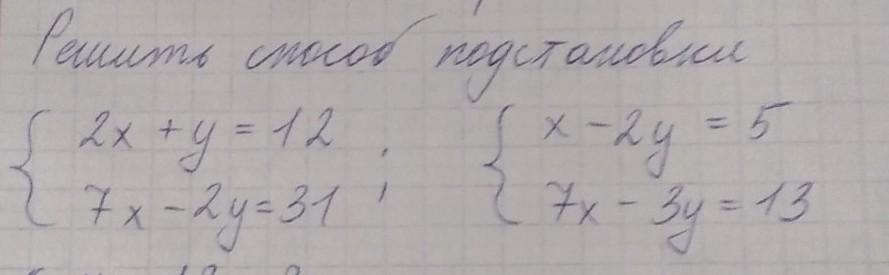 Решить способ подстановки
2x + y = 12 ; x - 2y = 5
7x - 2y = 31 7x - 3y = 13